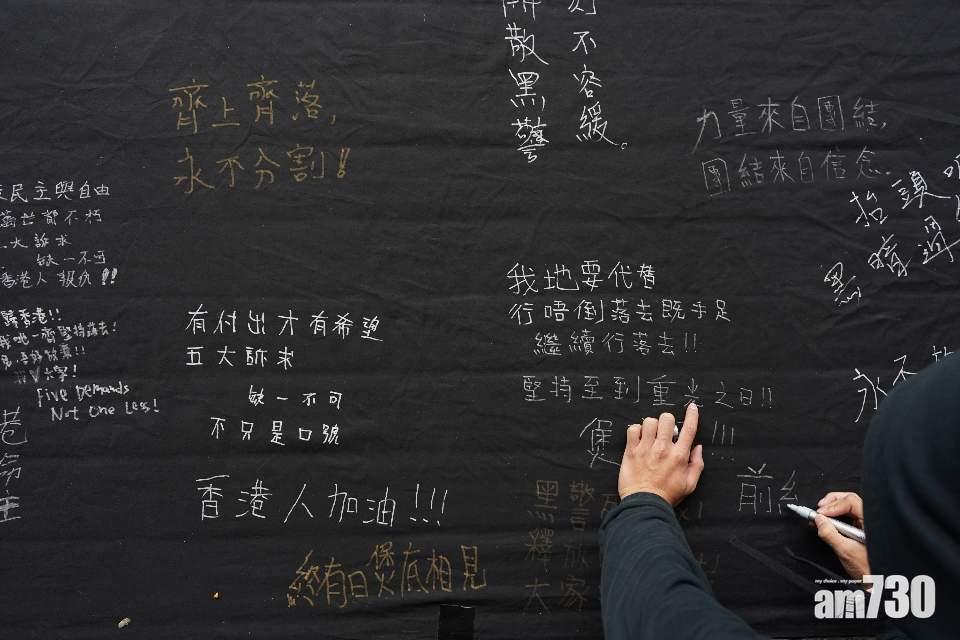 散黑警
不容緩。
齊上齊落,
永不分割!!
力量來自團結,
團結來自信念.
抬頭
黑暗
民主與自由
都不朽
大訴求
缺一不可
香港人 報仇!!
香港!!
一齊堅持落去!
Five Demands
Not One Less!
有付出才有希望
五大訴求
缺一不可
不只是口號
我地要代替
行唔倒落去既手足
繼續行落去!!
堅持至到重光之日!!
煲
!!!
永不
香港人加油!!!
終有日煲底相見
黑警
釋放
大家
前
my choice . my paper
am730